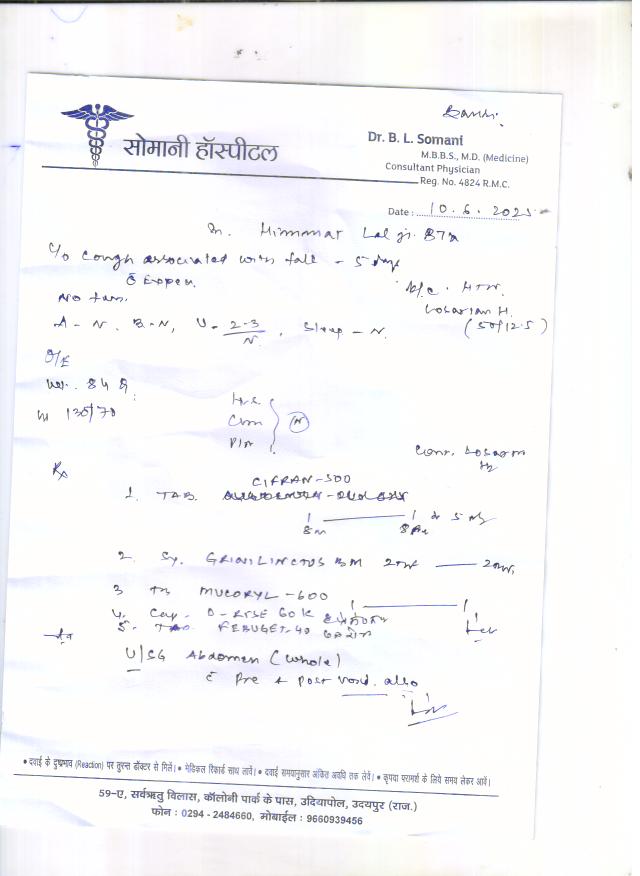 सोमानी हॉस्पीटल
Dr. B. L. Somani
M.B.B.S., M.D. (Medicine)
Consultant Physician
Reg. No. 4824 R.M.C.
Date : 10.6.2025
Himmat Lal ji 87
C/o Cough associated with fall - 5 days
c̄ Expec.
HTN.
Losartan H.
(50/12.5)
A - N. B - N, U - 2-3/N, Sleep - N.
O/E
130/70
N
Rx
CIFRAN-500
1. TAB.
8am
2. Sy. GRILINCTUS BM
3 TB MUCORYL-600
4. Cap. D-RISE 60K
5. TAB FEBUGET-40
U/SG Abdomen (whole)
c̄ Pre & post void. also
• दवाई के दुष्प्रभाव (Reaction) पर तुरन्त डॉक्टर से मिलें। • मेडिकल रिकार्ड साथ लावें। • दवाई समयानुसार अंकित अवधि तक लेवें। • कृपया परामर्श के लिये समय लेकर आवें।
59-ए, सर्वऋतु विलास, कॉलोनी पार्क के पास, उदियापोल, उदयपुर (राज.)
फोन : 0294 - 2484660, मोबाईल : 9660939456